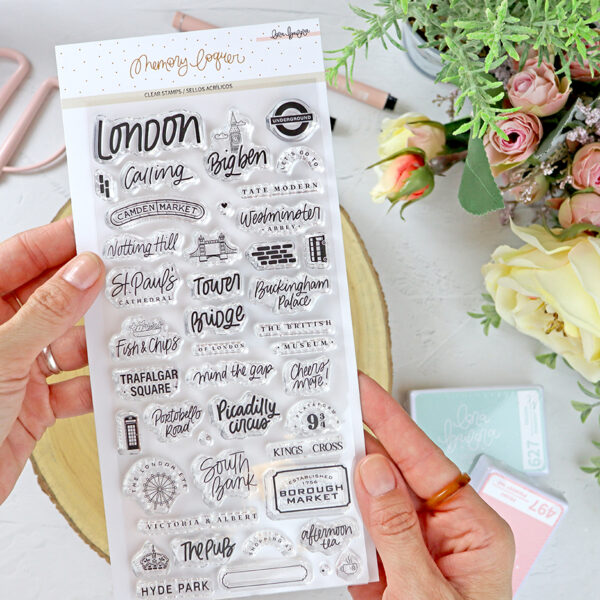 Memory loquer
CLEAR STAMPS / SELLOS ACRÍLICOS
LONDON
UNDERGROUND
BigBen
Calling
LET'S GO TO
TATE MODERN
CAMDEN MARKET
Westminster
ABBEY
Notting Hill
St. Paul's
CATHEDRAL
Tower
Bridge
Buckingham
Palace
Fish & Chips
OF LONDON
THE BRITISH
MUSEUM
TRAFALGAR
SQUARE
mind the gap
Cheers
mate
Portobello
Road
Picadilly
circus
PLATFORM
9¾
KINGS CROSS
THE LONDON EYE
South
Bank
ESTABLISHED
1756
BOROUGH
MARKET
VICTORIA & ALBERT
The Pub
SHOPPING AT
afternoon
tea
HYDE PARK
627
497